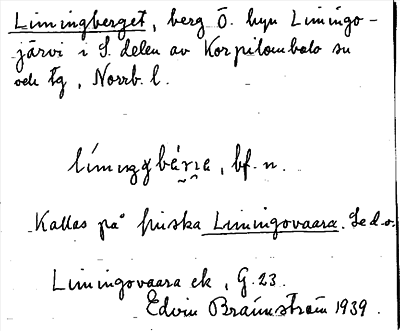 Limingberget, berg Ö. byn Limingo-
järvi i S. delen av Korpilombolo sn
och tg, Norrb. l.
líminggbærıe, bf. n.
Kallas på finska Limingovaara. Se d.o.
Limingovaara ek, G. 23.
Edvin Brännström 1939.